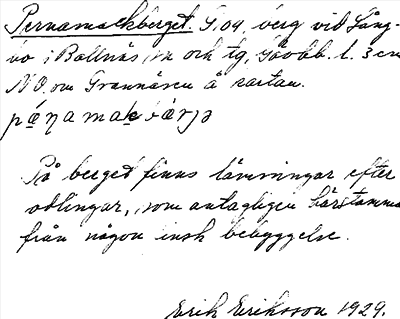 Pernamackberget. S.09, berg vid Lång-
bo i Bollnäs, sn och tg, Gävlebl. l. 3 cm
NO. om Grannäsen å kartan.
På berget finns lämningar efter
odlingar, som antagligen härstamma
från någon finsk bebyggelse.
Erik Eriksson 1929.